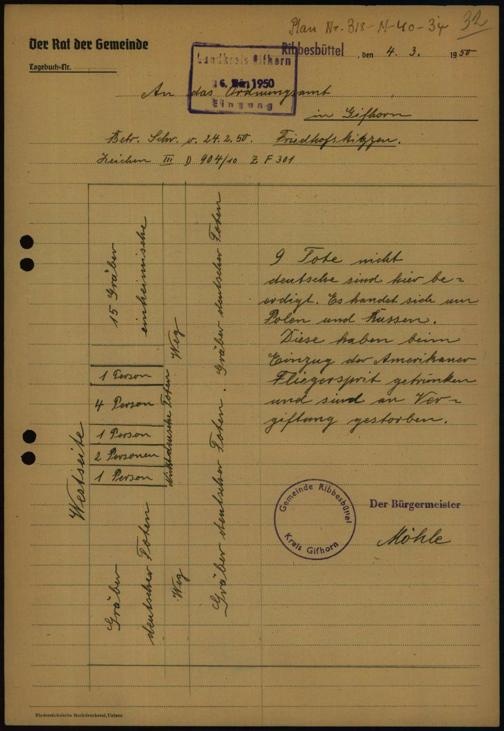 Plan Nr. 318-N-40-34
32
Der Rat der Gemeinde
Tagebuch-Nr.
Ribbesbüttel, den 4. 3. 1950
Landkreis Gifhorn
6. März 1950
Eingang
An das Ordnungsamt
in Gifhorn
Betr. Schr. v. 24.2.50. Friedhofskizzen.
Zeichen III D 904/10 Z F 301
9 Tote nicht
deutsche sind hier be-
erdigt. Es handet sich um
Polen und Russen.
Diese haben beim
Einzug der Amerikaner
Fliegersprit getrunken
und sind an Ver-
giftung gestorben.
Westseite
15 Gräber
einheimische
1 Person
4 Person
1 Person
2 Personen
1 Person
Gräber
deutscher Toten
Weg
Nichtdeutsche Toten
Weg
Gräber deutscher Toten. Gräber deutscher Toten
Gemeinde Ribbesbüttel
Kreis Gifhorn
Der Bürgermeister
Möhle
Niedersächsische Buchdruckerei, Uelzen